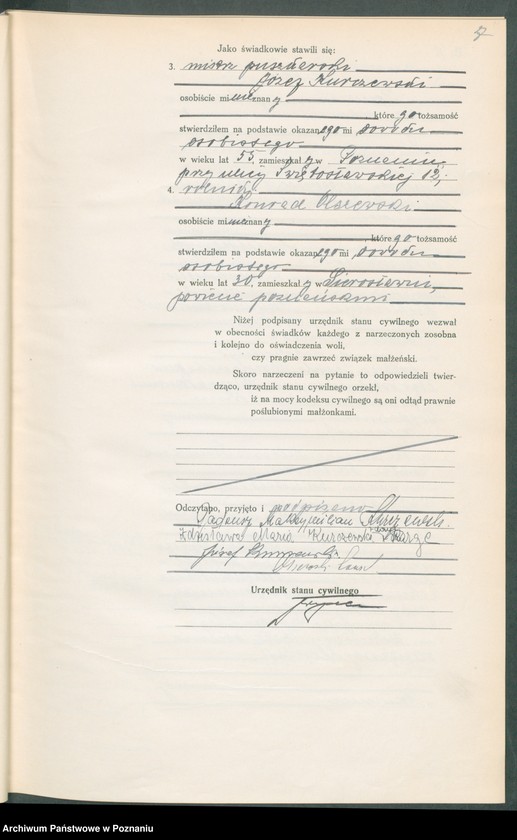 Jako świadkowie stawili się:
3. mistrz puszkarski
Józef Kurczewski
osobiście mi nieznany
, którego tożsamość
stwierdziłem na podstawie okazanego mi dowodu
osobistego
w wieku lat 55, zamieszkały w Poznaniu,
przy ulicy Świętosławskiej 12,
4. rolnik
Konrad Olszewski
osobiście mi nieznany
, którego tożsamość
stwierdziłem na podstawie okazanego mi dowodu
osobistego
w wieku lat 30, zamieszkały w
powiecie poznańskim
Niżej podpisany urzędnik stanu cywilnego wezwał
w obecności świadków każdego z narzeczonych z osobna
i kolejno do oświadczenia woli,
czy pragnie zawrzeć związek małżeński.
Skoro narzeczeni na pytanie to odpowiedzieli twier-
dząco, urzędnik stanu cywilnego orzekł,
iż na mocy kodeksu cywilnego są oni odtąd prawnie
poślubionymi małżonkami.
Odczytano, przyjęto i podpisano
Tadeusz Maksymilian
Zdzisława Maria Kurczewska
Józef Kurczewski
Urzędnik stanu cywilnego
Archiwum Państwowe w Poznaniu